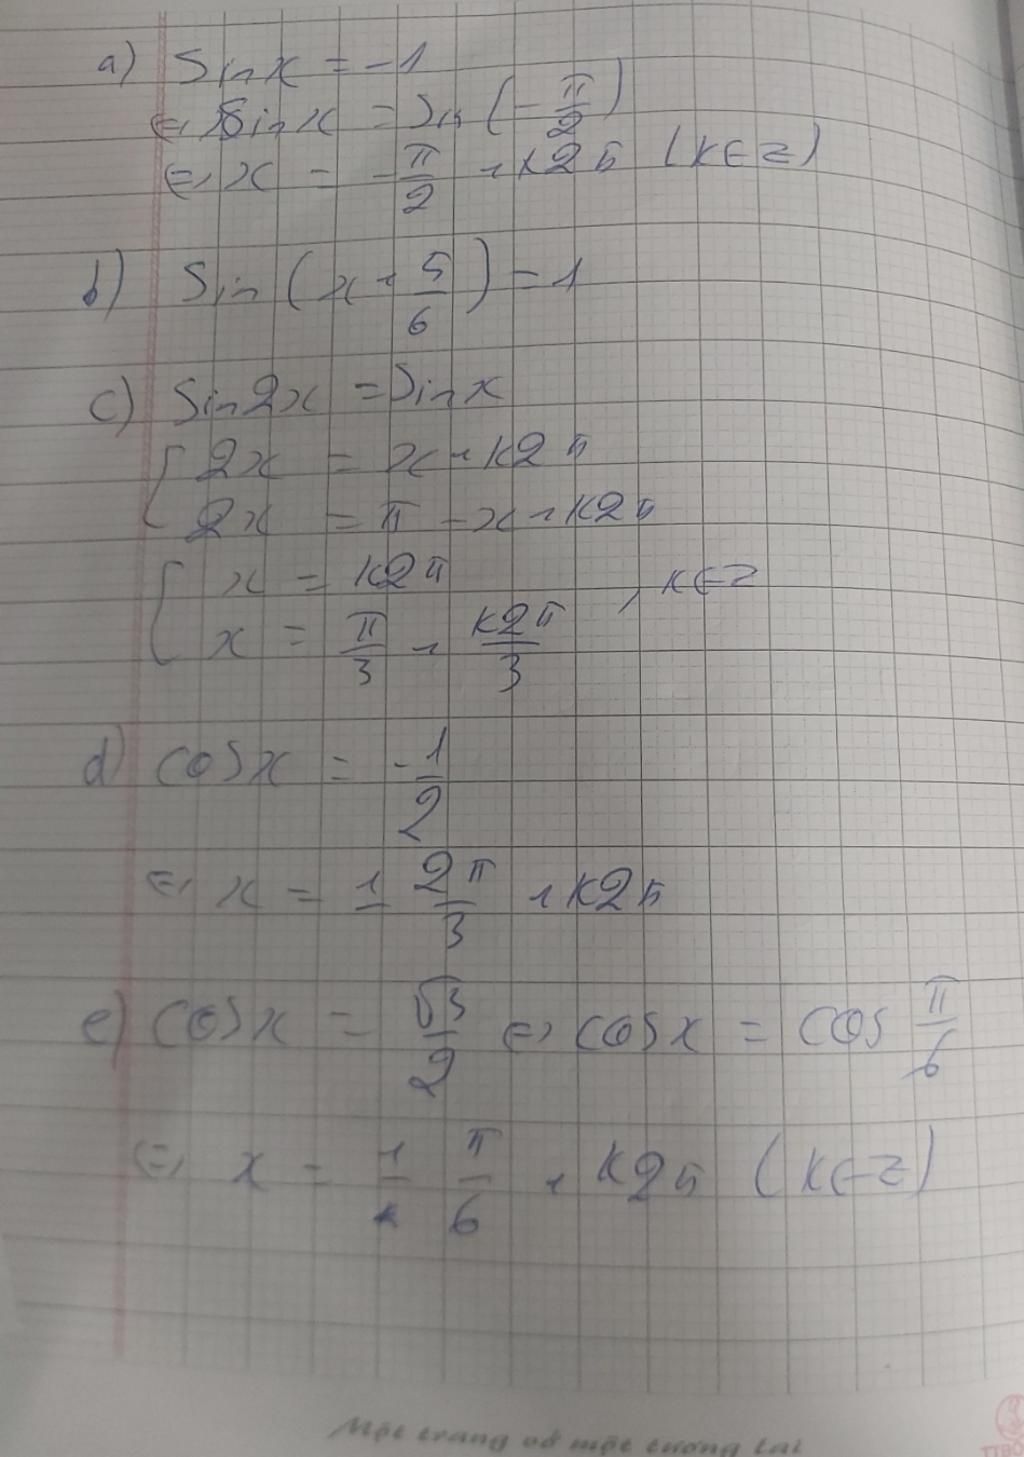 a) Sinx = -1
⇔ Sinx = Sin(-π/2)
⇔ x = -π/2 + k2π (k∈Z)
b) Sin(x + 5/6) = 1
c) Sin2x = Sinx
[ 2x = x + k2π
2x = π - x + k2π
[ x = k2π
x = π/3 + k2π/3 , k∈Z
d) cosx = -1/2
⇔ x = ± 2π/3 + k2π
e) cosx = √3/2 ⇔ cosx = cos π/6
⇔ x = ± π/6 + k2π (k∈Z)
Một trang vở một tương lai